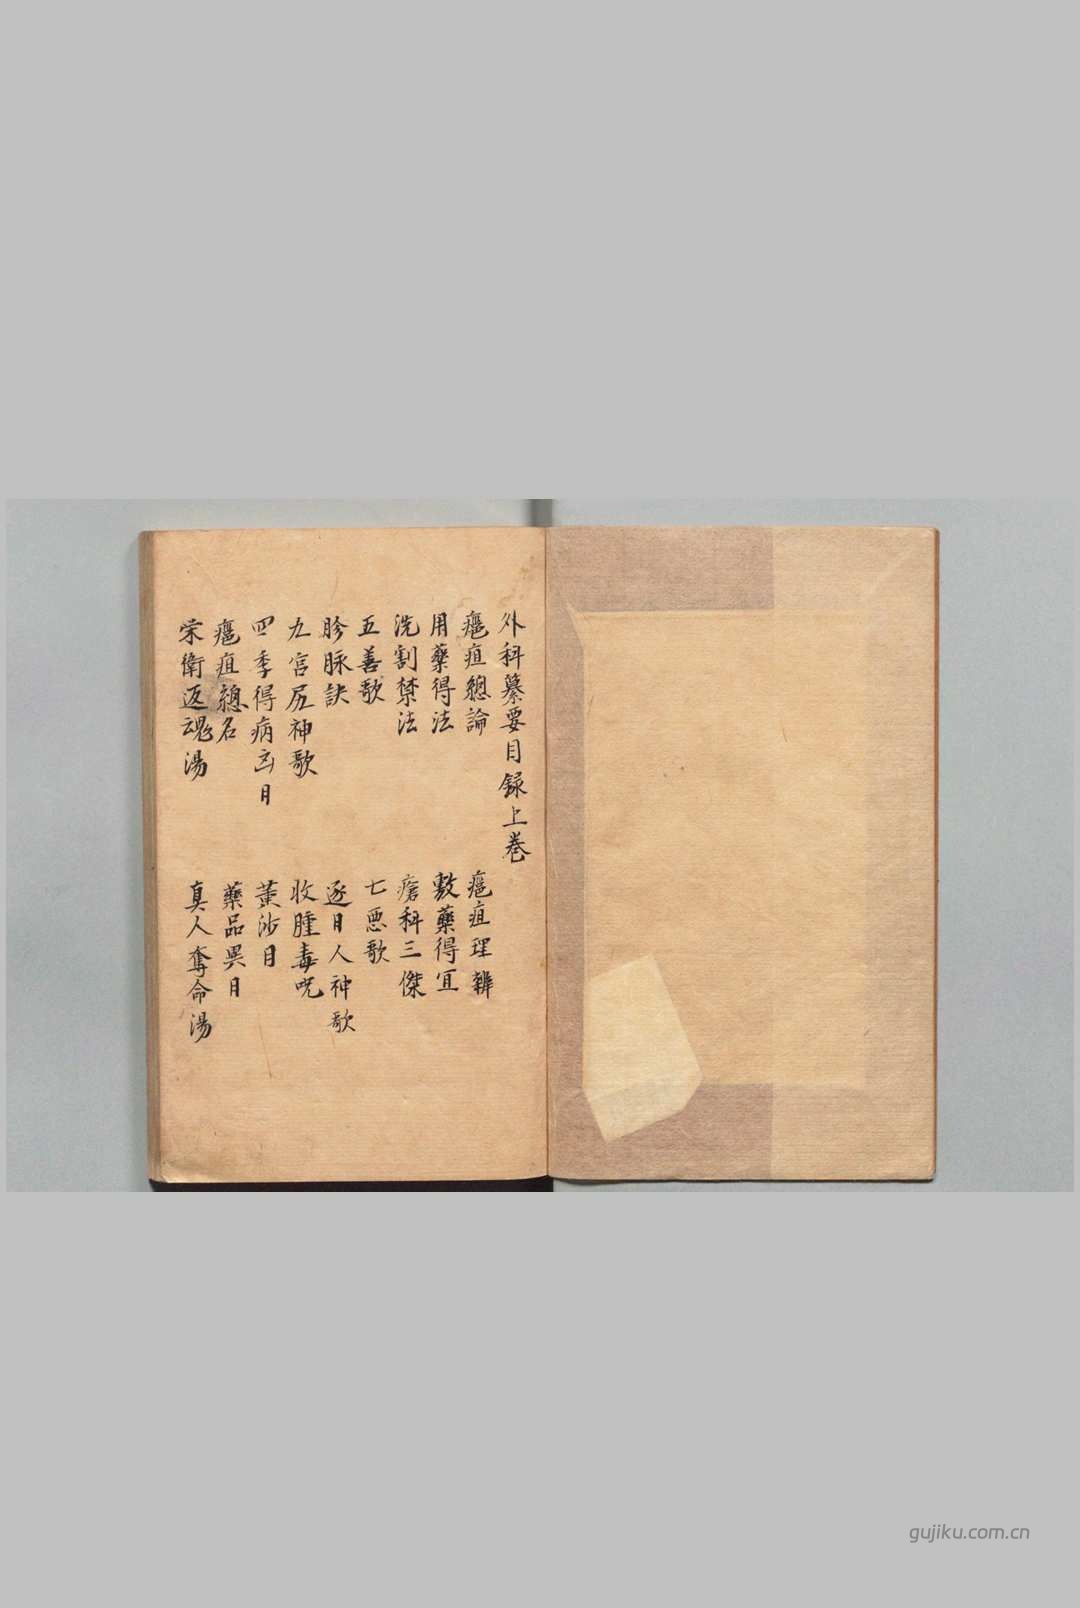 外科纂要目录上卷
癰疽總論 癰疽理辨
用藥得法 敷藥得宜
洗割禁法 瘡科三傑
五善歌 七惡歌
胗脉訣 逐日人神歌
九宫尻神歌 收腫毒呪
四季得病凶日 黄沙日
癰疽總名 藥品異日
荣衛返魂湯 真人奪命湯
gujiku.com.cn